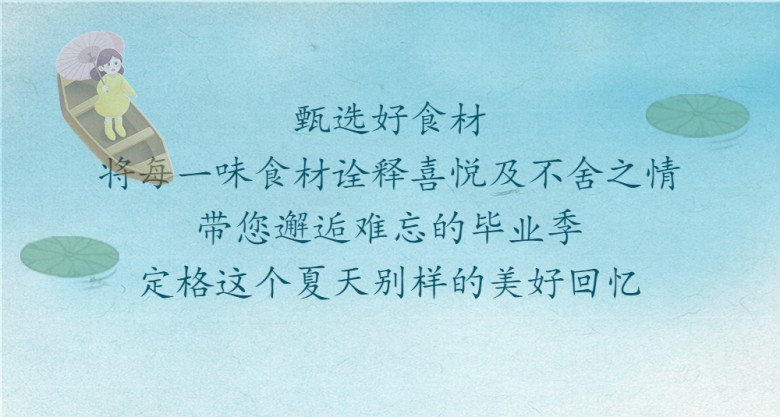 甄选好食材
将每一味食材诠释喜悦及不舍之情
带您邂逅难忘的毕业季
定格这个夏天别样的美好回忆